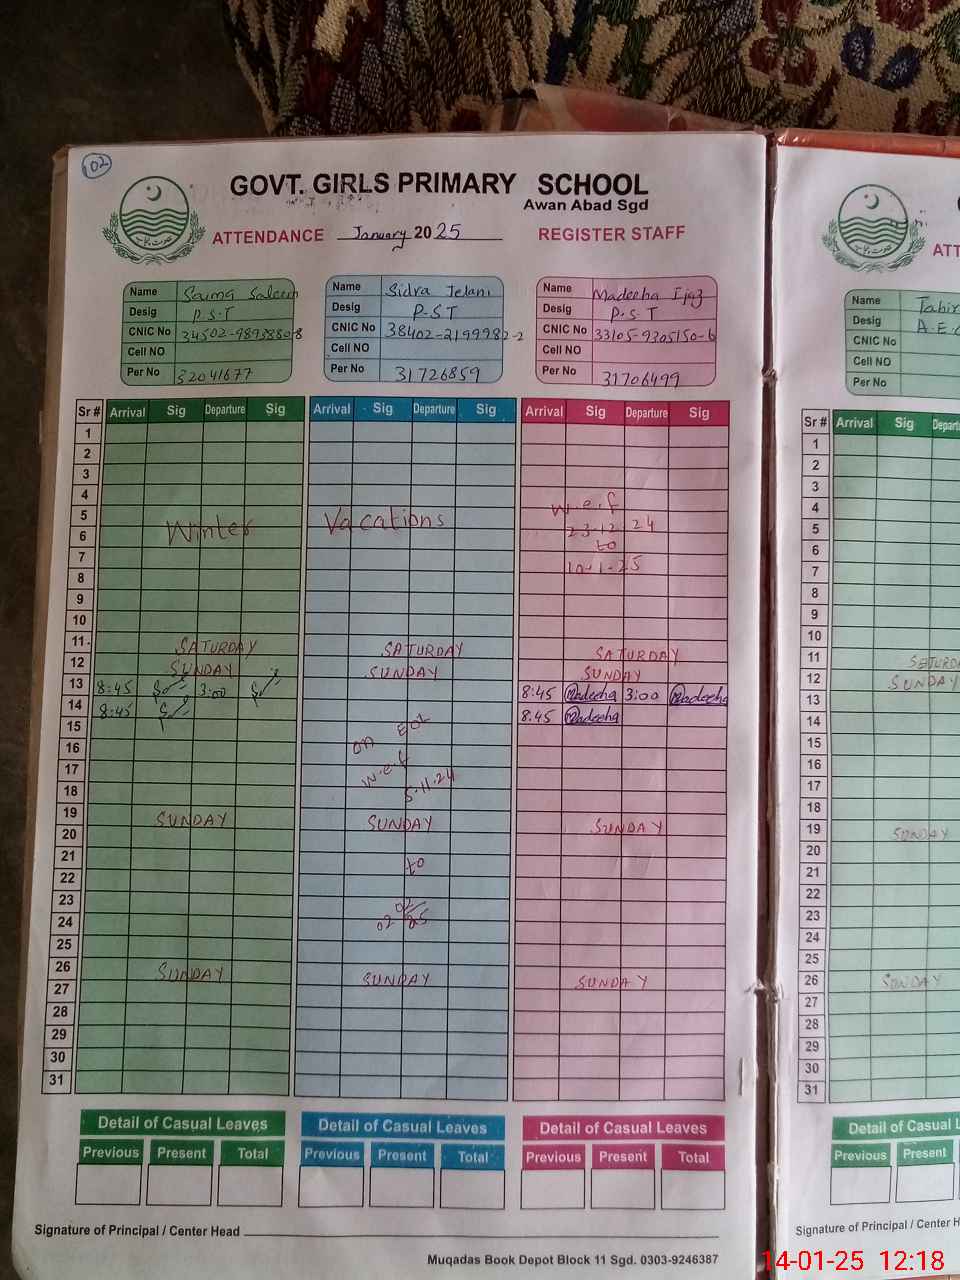 102
GOVT. GIRLS PRIMARY SCHOOL
Awan Abad Sgd
ATTENDANCE January 2025 REGISTER STAFF
Name Saima Saleem
Desig P.S.T
CNIC No
Cell NO
Per No 32041677
Name Sidra Jelani
Desig P-S T
CNIC No 38402-2199982-2
Cell NO
Per No 31726859
Name Madeeha Ijaz
Desig P.S.T
CNIC No 33105-9205150-6
Cell NO
Per No 31706499
Sr # Arrival Sig Departure Sig Arrival Sig Departure Sig Arrival Sig Departure Sig
1
2
3
4
5 Winter Vacations w.e.f
6 23-12 24
to
7 10-1-25
8
9
10
11 SATURDAY SATURDAY SATURDAY
12 SUNDAY SUNDAY SUNDAY
13 8:45 3:00 8:45 Madeeha 3:00 Madeeha
14 8:45 8.45 Madeeha
15 on EOL
16
17 w.e.f
18 5.11.24
19 SUNDAY SUNDAY SUNDAY
20
21 to
22
23
24 02 02/25
25
26 SUNDAY SUNDAY SUNDAY
27
28
29
30
31
Detail of Casual Leaves Detail of Casual Leaves Detail of Casual Leaves
Previous Present Total Previous Present Total Previous Present Total
Signature of Principal / Center Head
Muqadas Book Depot Block 11 Sgd. 0303-9246387
ATT
Name Tahir
Desig A.E.
CNIC No
Cell NO
Per No
Sr # Arrival Sig Depart
1
2
3
4
5
6
7
8
9
10
11 SATURDA
12 SUNDAY
13
14
15
16
17
18
19 SUNDAY
20
21
22
23
24
25
26 SUNDAY
27
28
29
30
31
Detail of Casual L
Previous Present
Signature of Principal / Center H
14-01-25 12:18